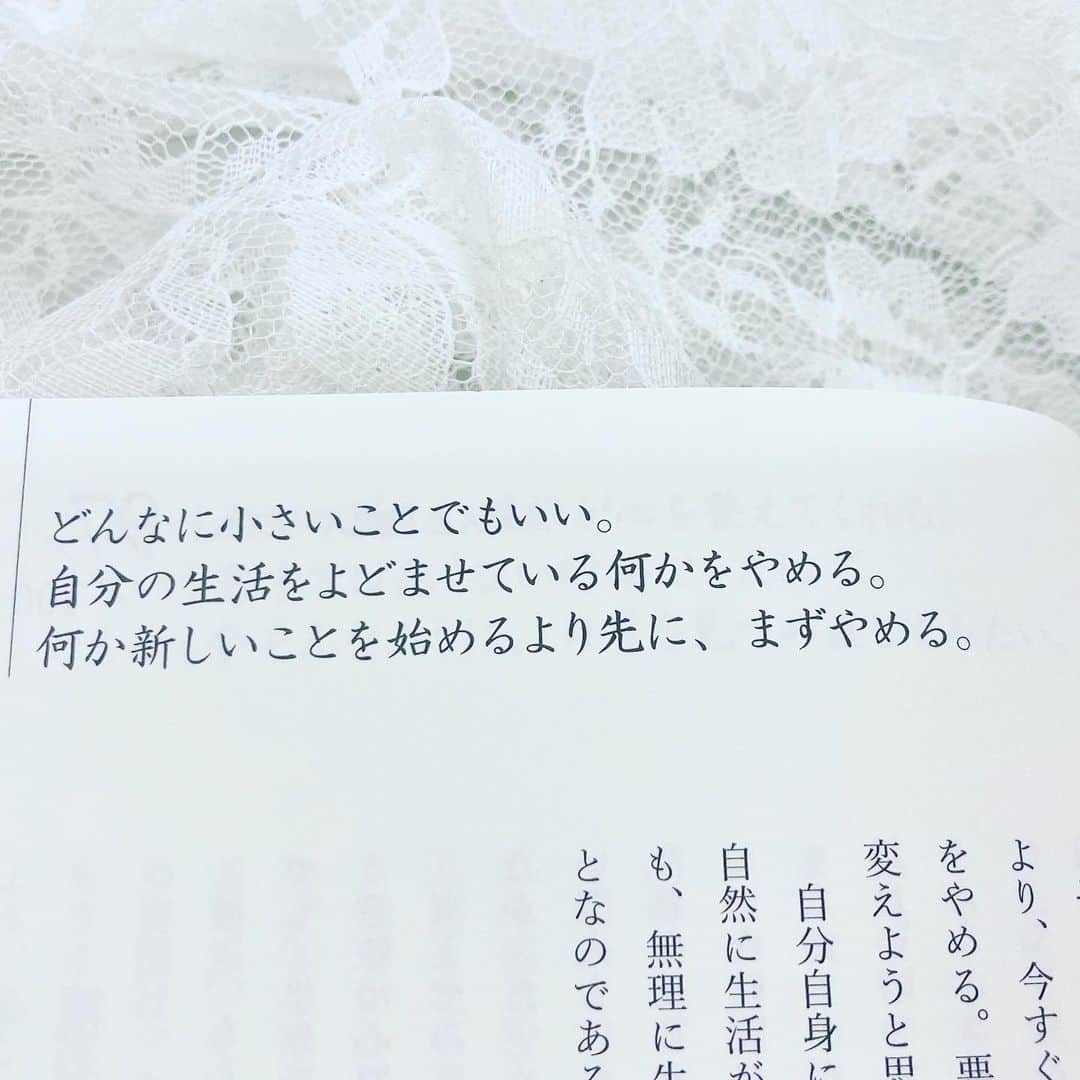 どんなに小さいことでもいい。
自分の生活をよどませている何かをやめる。
何か新しいことを始めるより先に、まずやめる。
より、今すぐ
をやめる。悪
変えようと思
自分自身に
自然に生活が
も、無理に生
となのである